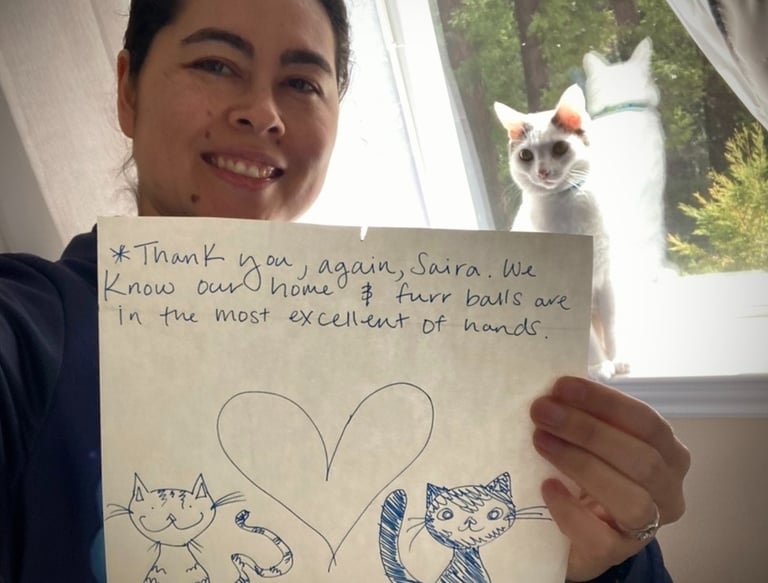 *Thank you, again, Saira. We
Know our home & furr balls are
in the most excellent of hands.